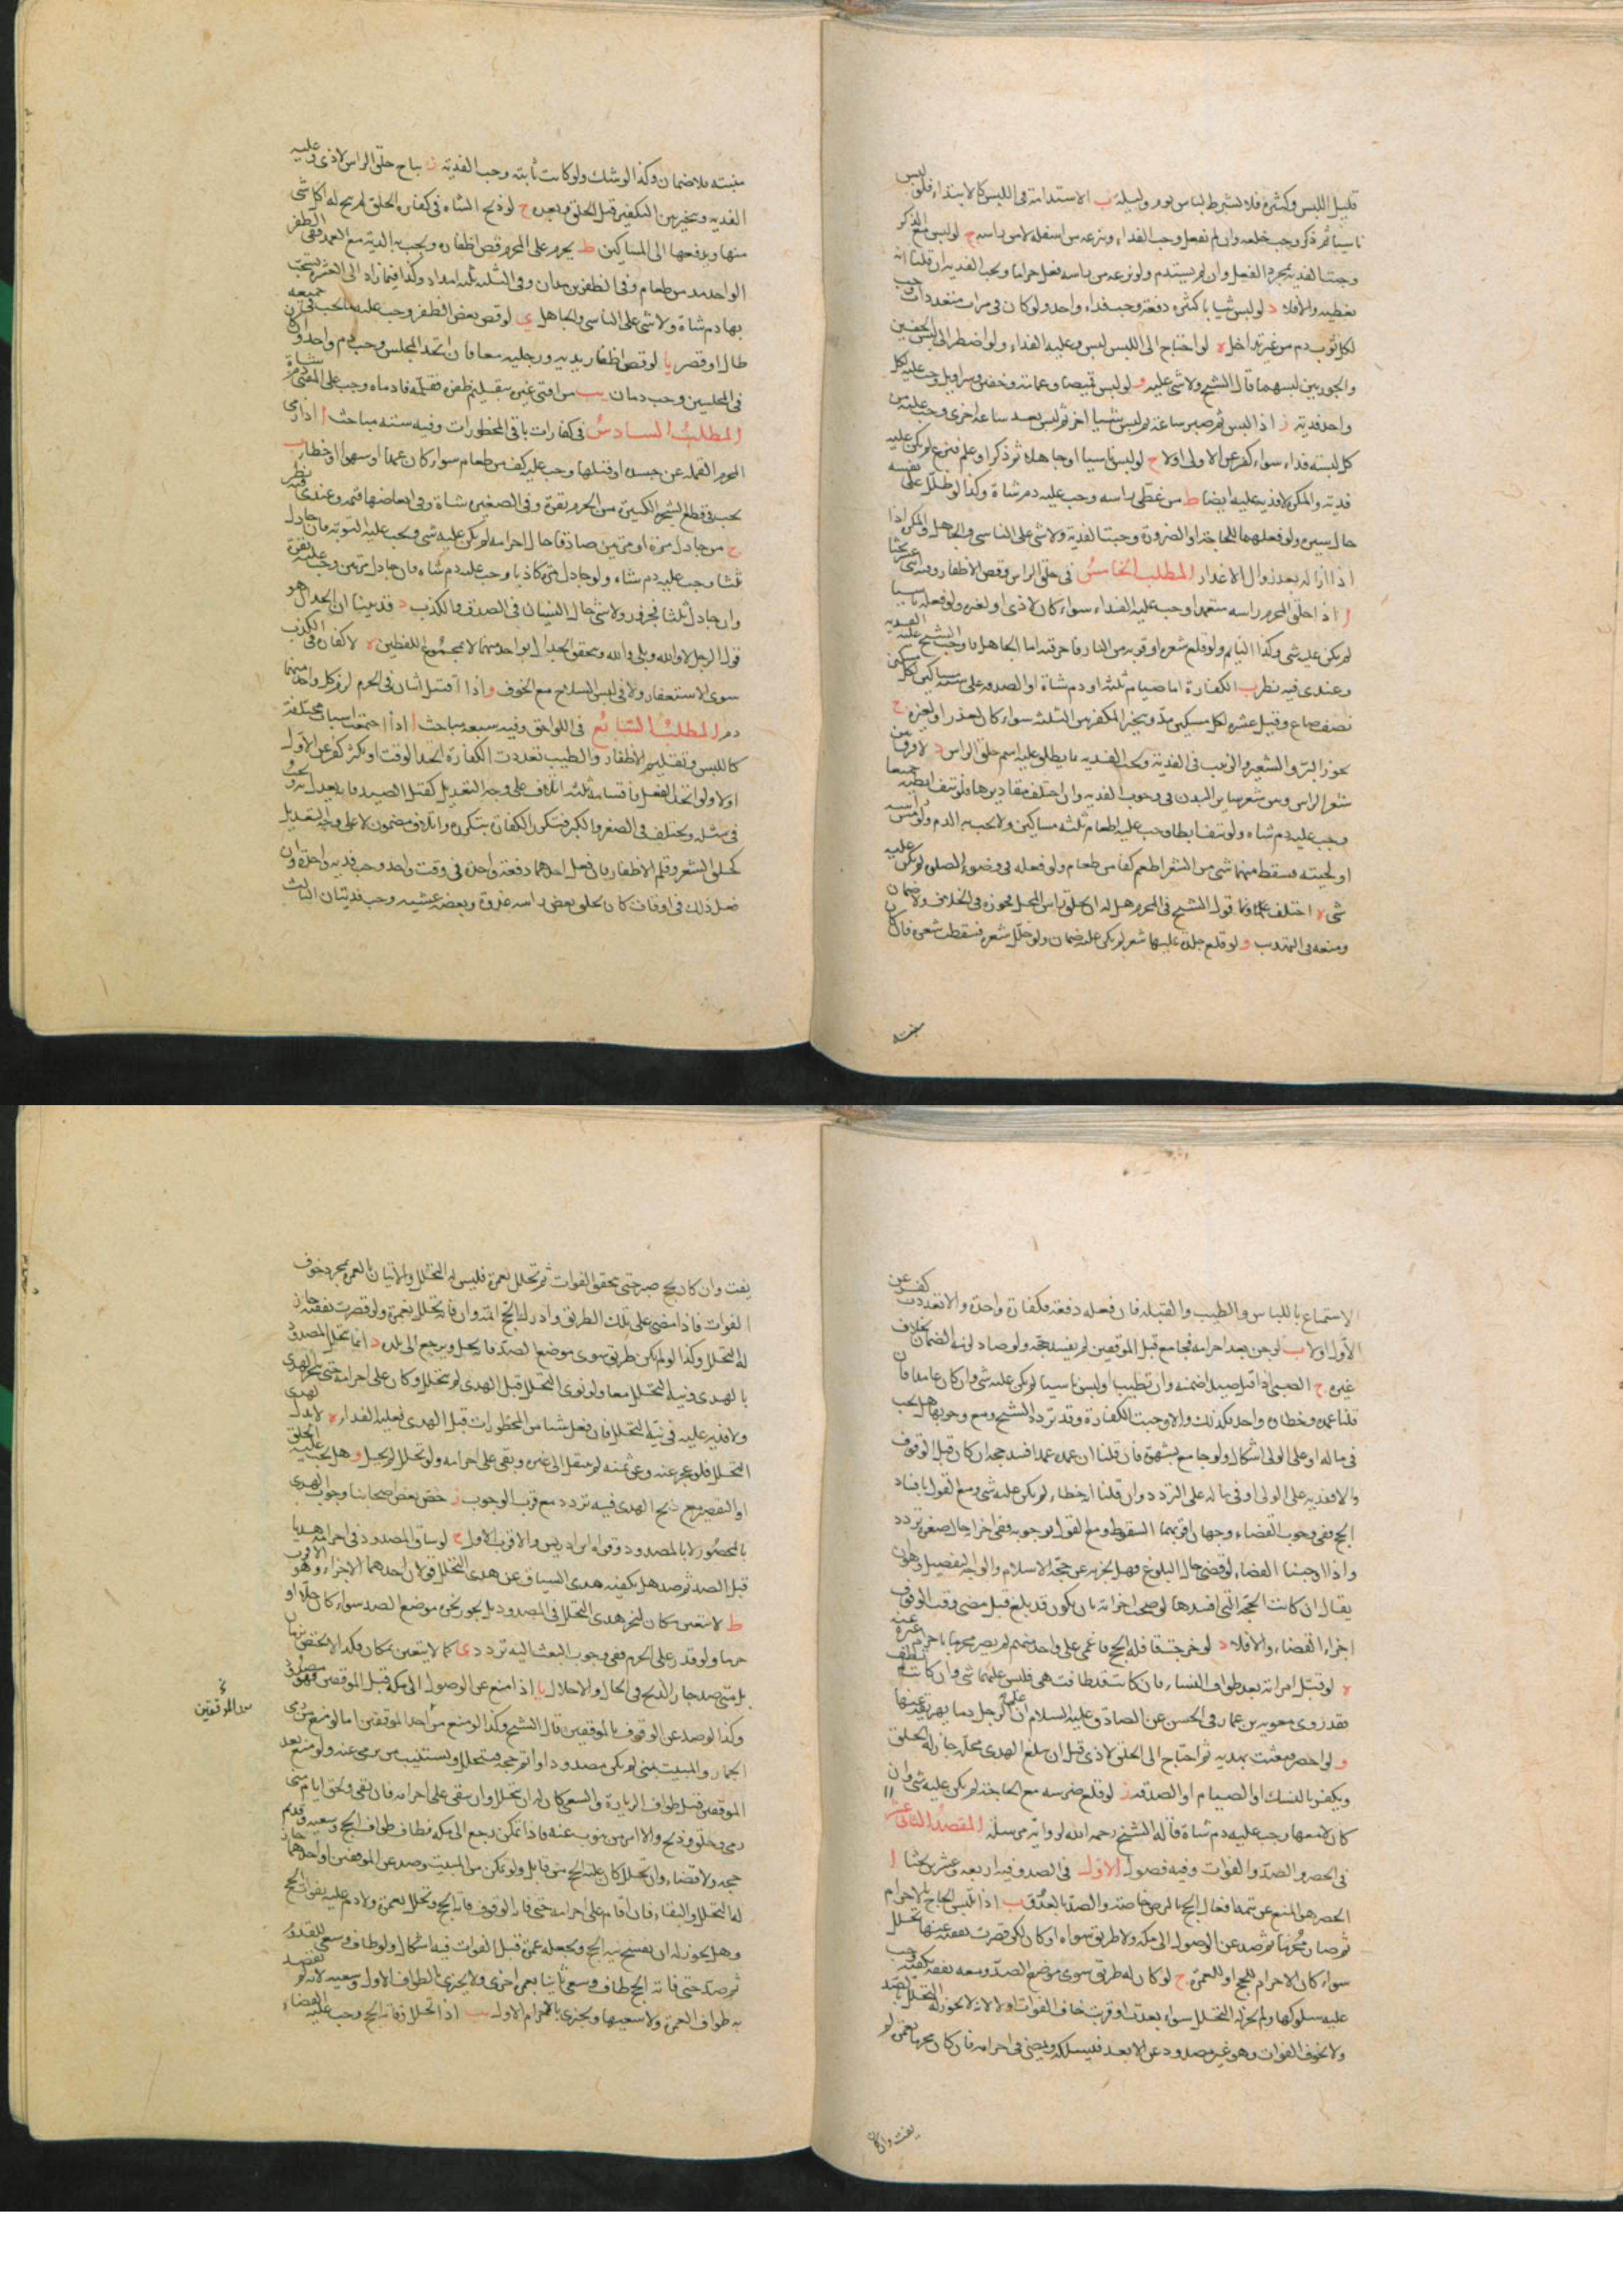 قليل اللبس وكثيره فلا يشترط لباس يوم وليلة ب الاستدامة في اللبس كالابتداء فلو لبس
ناسيا ثم ذكر وجب خلعه وان لم يفعل وجب الفداء وينزعه من اسفله لا من راسه ج لو لبس مع الذكر
وجبت الفدية بمجرد الفعل وان لم يستدم ولو نزعه من راسه فعل حراما ويجب الفدية ان قلنا انه
تغطية والا فلا د لو لبس ثيابا كثيرة دفعة وجب فداء واحد ولو كان في مرات متعددات وجب
لكل ثوب دم من غير تداخل ه لو احتاج الى اللبس لبس وعليه الفداء ولو اضطر الى لبس الخفين
والجوربين لبسهما قال الشيخ ولا شي عليه و لو لبس قميصا وعمامة وخفين وسراويل وجب عليه لكل
واحد فدية ز اذا لبس ثم صبر ساعة ثم لبس شيئا اخر ثم لبس بعد ساعة اخرى وجب عليه من
كل لبسة فداء سواء كفر عن الاولى اولا ح لو لبس ناسيا او جاهلا ثم ذكر او علم فنزع لم يكن عليه
فدية والمكره لا فدية عليه ايضا ط من غطى راسه وجب عليه دم شاة وكذا لو ظلل على نفسه
حال سيره ولو فعلهما للحاجة او الضرورة وجبت الفدية ولا شي على الناسي والجاهل والمكره اذا
اذا ازاله بعد زوال الاعذار المطلب الخامس في حلق الراس وقص الاظفار وفيه احد عشر بحثا
ا اذا حلق المحرم راسه متعمدا وجب عليه الفداء سواء كان لاذى او لغيره ولو فعله ناسيا
لم يكن عليه شي وكذا النايم ولو قلع شعره او قربه من النار فاحرقته اما الجاهل فاوجب الشيخ عليه الفدية
وعندي فيه نظر ب الكفارة اما صيام ثلثة او دم شاة او الصدقة على ستة مساكين لكل مسكين
نصف صاع وقيل عشرة لكل مسكين مد ويتخير المكفر من الثلثة سواء كان لعذر او لغيره ج
يجوز البر والشعير والزبيب في الفدية وتجب الفدية بما يطلق عليه اسم حلق الراس د لا فرق بين
شعر الراس وبين شعر ساير البدن في وجوب الفدية وان اختلف مقاديرها فلو نتف ابطيه جميعا
وجب عليه دم شاة ولو نتف ابطا وجب عليه اطعام ثلثة مساكين ولا يجب به الدم ولو مس راسه
او لحيته فسقط منهما شي من الشعر اطعم كفا من طعام ولو فعله في وضوء الصلوة لم يكن عليه
شي ه اختلف قول الشيخ في المحرم هل له ان يحلق راس المحل فجوزه في الخلاف ولا ضمان
ومنعه في التهذيب و لو قلع جلدة عليها شعر لم يكن عليه ضمان ولو خلل شعره فسقطت شعرة فان كان
منبته
منبته فلا ضمان وكذا لو شك ولو كانت ثابتة وجب الفدية ز يباح حلق الراس لاذى وعليه
الفدية ويتخير بين التكفير قبل الحلق وبعده ح لو ذبح الشاة في كفارة الحلق لم يبح له اكل شي
منها ويدفعها الى المساكين ط يحرم على المحرم قص اظفاره ويجب به الدية مع العمد ففي الظفر
الواحد مد من طعام وفي الظفرين مدان وفي الثلثة ثلثة امداد وكذا فيما زاد الى العشرة فيجب
بها دم شاة ولا شي على الناسي والجاهل ي لو قص بعض الظفر وجب عليه ما يجب في جميعه
طال او قصر يا لو قص اظفار يديه ورجليه معا فان اتحد المجلس وجب دم واحد وان كان
في مجلسين وجب دمان يب من افتى غيره بتقليم ظفره فقلمه فادماه وجب على المفتي دم شاة
المطلب السادس في كفارات باقي المحظورات وفيه ستة مباحث ا اذا رمى
المحرم القملة عن جسده او قتلها وجب عليه كف من طعام سواء كان عمدا او سهوا او خطا ب
يجب في قطع الشجرة الكبيرة من الحرم بقرة وفي الصغيرة شاة وفي ابعاضها قيمة وعندي فيه نظر
ج من جادل مرة او مرتين صادقا حال احرامه لم يكن عليه شي ويجب عليه التوبة فان جادل
ثلثا وجب عليه دم شاة ولو جادل مرة كاذبا وجب عليه دم شاة فان جادل مرتين وجب عليه بقرة
وان جادل ثلثا فجزور ولا شي حال النسيان في الصدق والكذب د قد بينا ان الجدال هو
قول الرجل لا والله وبلى والله ويتحقق الجدال بواحد منهما لا مجموع اللفظين ه لا كفارة في الكذب
سوى الاستغفار ولا في لبس السلاح مع الخوف و اذا اقتتل اثنان في الحرم لزم كل واحد منهما
دم المطلب السابع في اللواحق وفيه سبعة مباحث ا اذا اجتمعت اسباب مختلفة
كاللبس وتقليم الاظفار والطيب تعددت الكفارة اتحد الوقت او تكثر كفر عن الاول
اولا ولو اتحد الفعل فاقسامه ثلثة اتلاف على وجه التعديل كقتل الصيد فانه يعدل به ويجب
في مثله ويختلف في الصغر والكبر فتتكرر الكفارة بتكرره واتلاف مضمون لا على وجه التعديل
كحلق الشعر وقلم الاظفار فان فعل احدهما دفعة واحدة في وقت واحد وجب فدية واحدة وان
فعل ذلك في اوقات كان يحلق بعض راسه غدوة وبعضه عشية وجب فديتان الثالث
الاستمتاع باللباس والطيب والقبلة فان فعله دفعة فكفارة واحدة والا تعددت كفر عن
الاول اولا ب لو جن بعد احرامه فجامع قبل الموقفين لم يفسد حجه ولو صاد لزمه الضمان بخلاف
غيره ج الصبي اذا قتل صيدا ضمنه وان تطيب او لبس ناسيا لم يكن عليه شي وان كان عامدا فان
قلنا عمده وخطاه واحد فكذلك والا وجبت الكفارة وقد تردد الشيخ ومع وجوبها هل يجب
في ماله او على الولي اشكال ولو جامع بشهوة فان قلنا ان عمده عمد افسد حجه ان كان قبل الوقوف
والا فدية على الولي او في ماله على التردد وان قلنا انه خطاء لم يكن عليه شي ومع القول بافساد
الحج ففي وجوب القضاء وجهان اقربهما السقوط ومع القول بوجوبه ففي اجزائه حال صغره تردد
واذا اوجبنا القضاء لو قضى حال البلوغ فهل يجزيه عن حجة الاسلام والوجه التفصيل وهو ان
يقال ان كانت الحجة التي افسدها لو صحت اجزاته بان يكون قد بلغ قبل مضي وقت الوقوف
اجزاه القضاء والا فلا د لو خرج حجاج قافلة فاغمي على واحد منهم لم يصر محرما باحرام غيره عنه
ه لو قبل امراته بعد طواف النساء فان كانت قد طافت هي فليس عليهما شي وان كانت لم تطف
فقد روى معوية بن عمار في الحسن عن الصادق عليه السلام ان على الرجل دما يهريقه عنها
و لو احصر فبعث بهديه ثم احتاج الى الحلق لاذى قبل ان يبلغ الهدي محله جاز له الحلق
ويكفر بالنسك او الصيام او الصدقة ز لو قلع ضرسه مع الحاجة لم يكن عليه شي وان
كان لا معها وجب عليه دم شاة قاله الشيخ رحمه الله لرواية مرسلة المقصد الثاني عشر
في الحصر والصد والفوات وفيه فصول الاول في الصد وفيه اربعة وعشرين بحثا ا
الحصر هو المنع عن تتمة افعال الحج بالمرض خاصة والصد بالعدو ب اذا تلبس الحاج بالاحرام
ثم صار محرما ثم صد عن الوصول الى مكة ولا طريق سواه او كان لكن قصرت نفقته عنها تحلل
سواء كان الاحرام للحج او للعمرة ج لو كان له طريق سوى موضع الصد ومعه نفقة تكفيه وجب
عليه سلوكها ولم يجز له التحلل سواء بعدت او قربت خاف الفوات اولا لانه لا يجوز له التحلل بالصد
ولا بخوف الفوات وهو غير مصدود عن الابعد فليسلكه ويمضي في احرامه فان كان محرما بعمرة لم
يفت وان كان
يفت وان كان بحج صبر حتى يتحقق الفوات ثم تحلل بعمرة فليس له التحلل والاتيان بالعمرة بمجرد خوف
الفوات فاذا مضى على تلك الطريق وادرك الحج اتمه وان فاته تحلل بعمرة ولو قصرت نفقته جاز
له التحلل وكذا لو لم يكن طريق سوى موضع الصد فانه يحل ويرجع الى بلده د انما يتحلل المصدود
بالهدي ونية التحلل معا ولو نوى التحلل قبل الهدي لم يتحلل وكان على احرامه حتى ينحر الهدي
ولا فدية عليه في نية التحلل فان فعل شيئا من المحظورات قبل الهدي فعليه الفداء ه لا بدل لهدي
التحلل فلو عجز عنه وعن ثمنه لم ينتقل الى غيره وبقي على احرامه ولو تحلل لم يحل و هل يجب عليه الحلق
او التقصير مع ذبح الهدي فيه تردد مع قرب الوجوب ز خص بعض اصحابنا وجوب الهدي
بالمحصور لا بالمصدود وقواه ابن ادريس والاقرب الاول ح لو ساق المصدود في احرامه هديا
قبل الصد ثم صد هل يكفيه هدي السياق عن هدي التحلل قولان احدهما الاجزاء وهو الاقرب
ط لا يتعين مكان لنحر هدي التحلل في المصدود بل يجوز نحره موضع الصد سواء كان حلا او
حرما ولو قدر على الحرم ففي وجوب البعث اليه تردد ي كما لا يتعين مكان فكذا لا يختص بزمان
بل متى صد جاز الذبح في الحال والاحلال يا اذا منع عن الوصول الى مكة قبل الموقفين فهو مصدود
وكذا لو صد عن الوقوف بالموقفين قال الشيخ وكذا لو منع من احد الموقفين اما لو منع من رمي
الجمار والمبيت بمنى لم يكن مصدودا وتم حجه فيتحلل ويستنيب من يرمي عنه ولو منع بعد
الموقفين قبل طواف الزيارة والسعي كان له ان يتحلل وان يبقى على احرامه فان بقي ولحق ايام منى
رمى وحلق وذبح والا امر من ينوب عنه فاذا تمكن رجع الى مكة فطاف طواف الحج وسعيه وقد تم
حجه ولا قضاء وان تحلل كان عليه الحج من قابل ولو تمكن من المبيت وصد عن الموقفين او احدهما جاز
له التحلل والبقاء فان اقام على احرامه حتى فاته الوقوف فاته الحج وتحلل بعمرة ولا دم عليه بفوات الحج
وهل يجوز له ان يفسخ نية الحج ويجعله عمرة قبل الفوات فيه اشكال ولو طاف وسعى للقدوم
ثم صد حتى فاته الحج طاف وسعى ثانيا بعمرة اخرى ولا يجتزى بالطواف الاول وسعيه لانه لم يقصد
به طواف العمرة ولا سعيها ويجتزى بالاحرام الاول يب اذا تحلل وفاته الحج وجب عليه القضاء